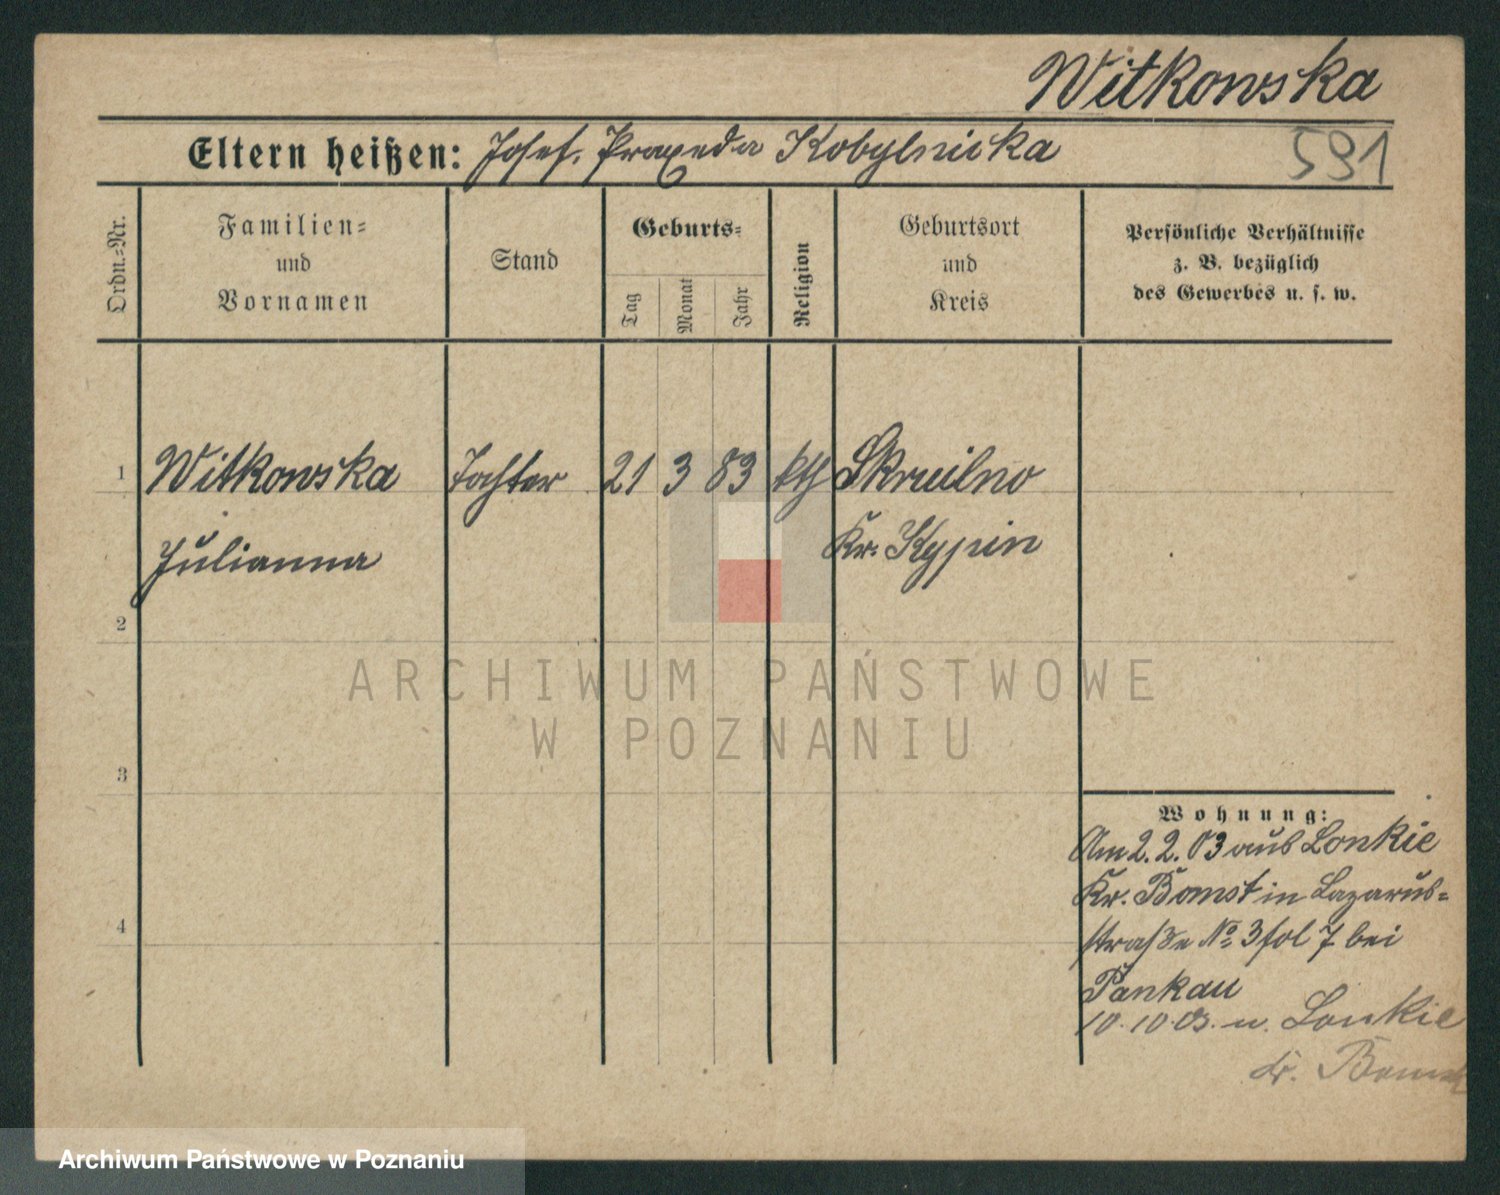 Witkowska
Eltern heißen: Josef, Praxeda Kobylnicka
591
Ordn.=Nr.
Familien=
und
Vornamen
Stand
Geburts=
Tag
Monat
Jahr
Religion
Geburtsort
und
Kreis
Persönliche Verhältnisse
z. B. bezüglich
des Gewerbes u. s. w.
1 Witkowska Tochter 21 3 83 kth Skrwilno
Julianna Kr. Rypin
2
ARCHIWUM PAŃSTWOWE
W POZNANIU
3
Wohnung:
Am 2. 2. 03 aus Lonkie
Kr. Bomst in Lazarus=
straße No 3 fol 7 bei
4
Pankau
10. 10. 03. n. Lonkie
Kr. Bomst
Archiwum Państwowe w Poznaniu